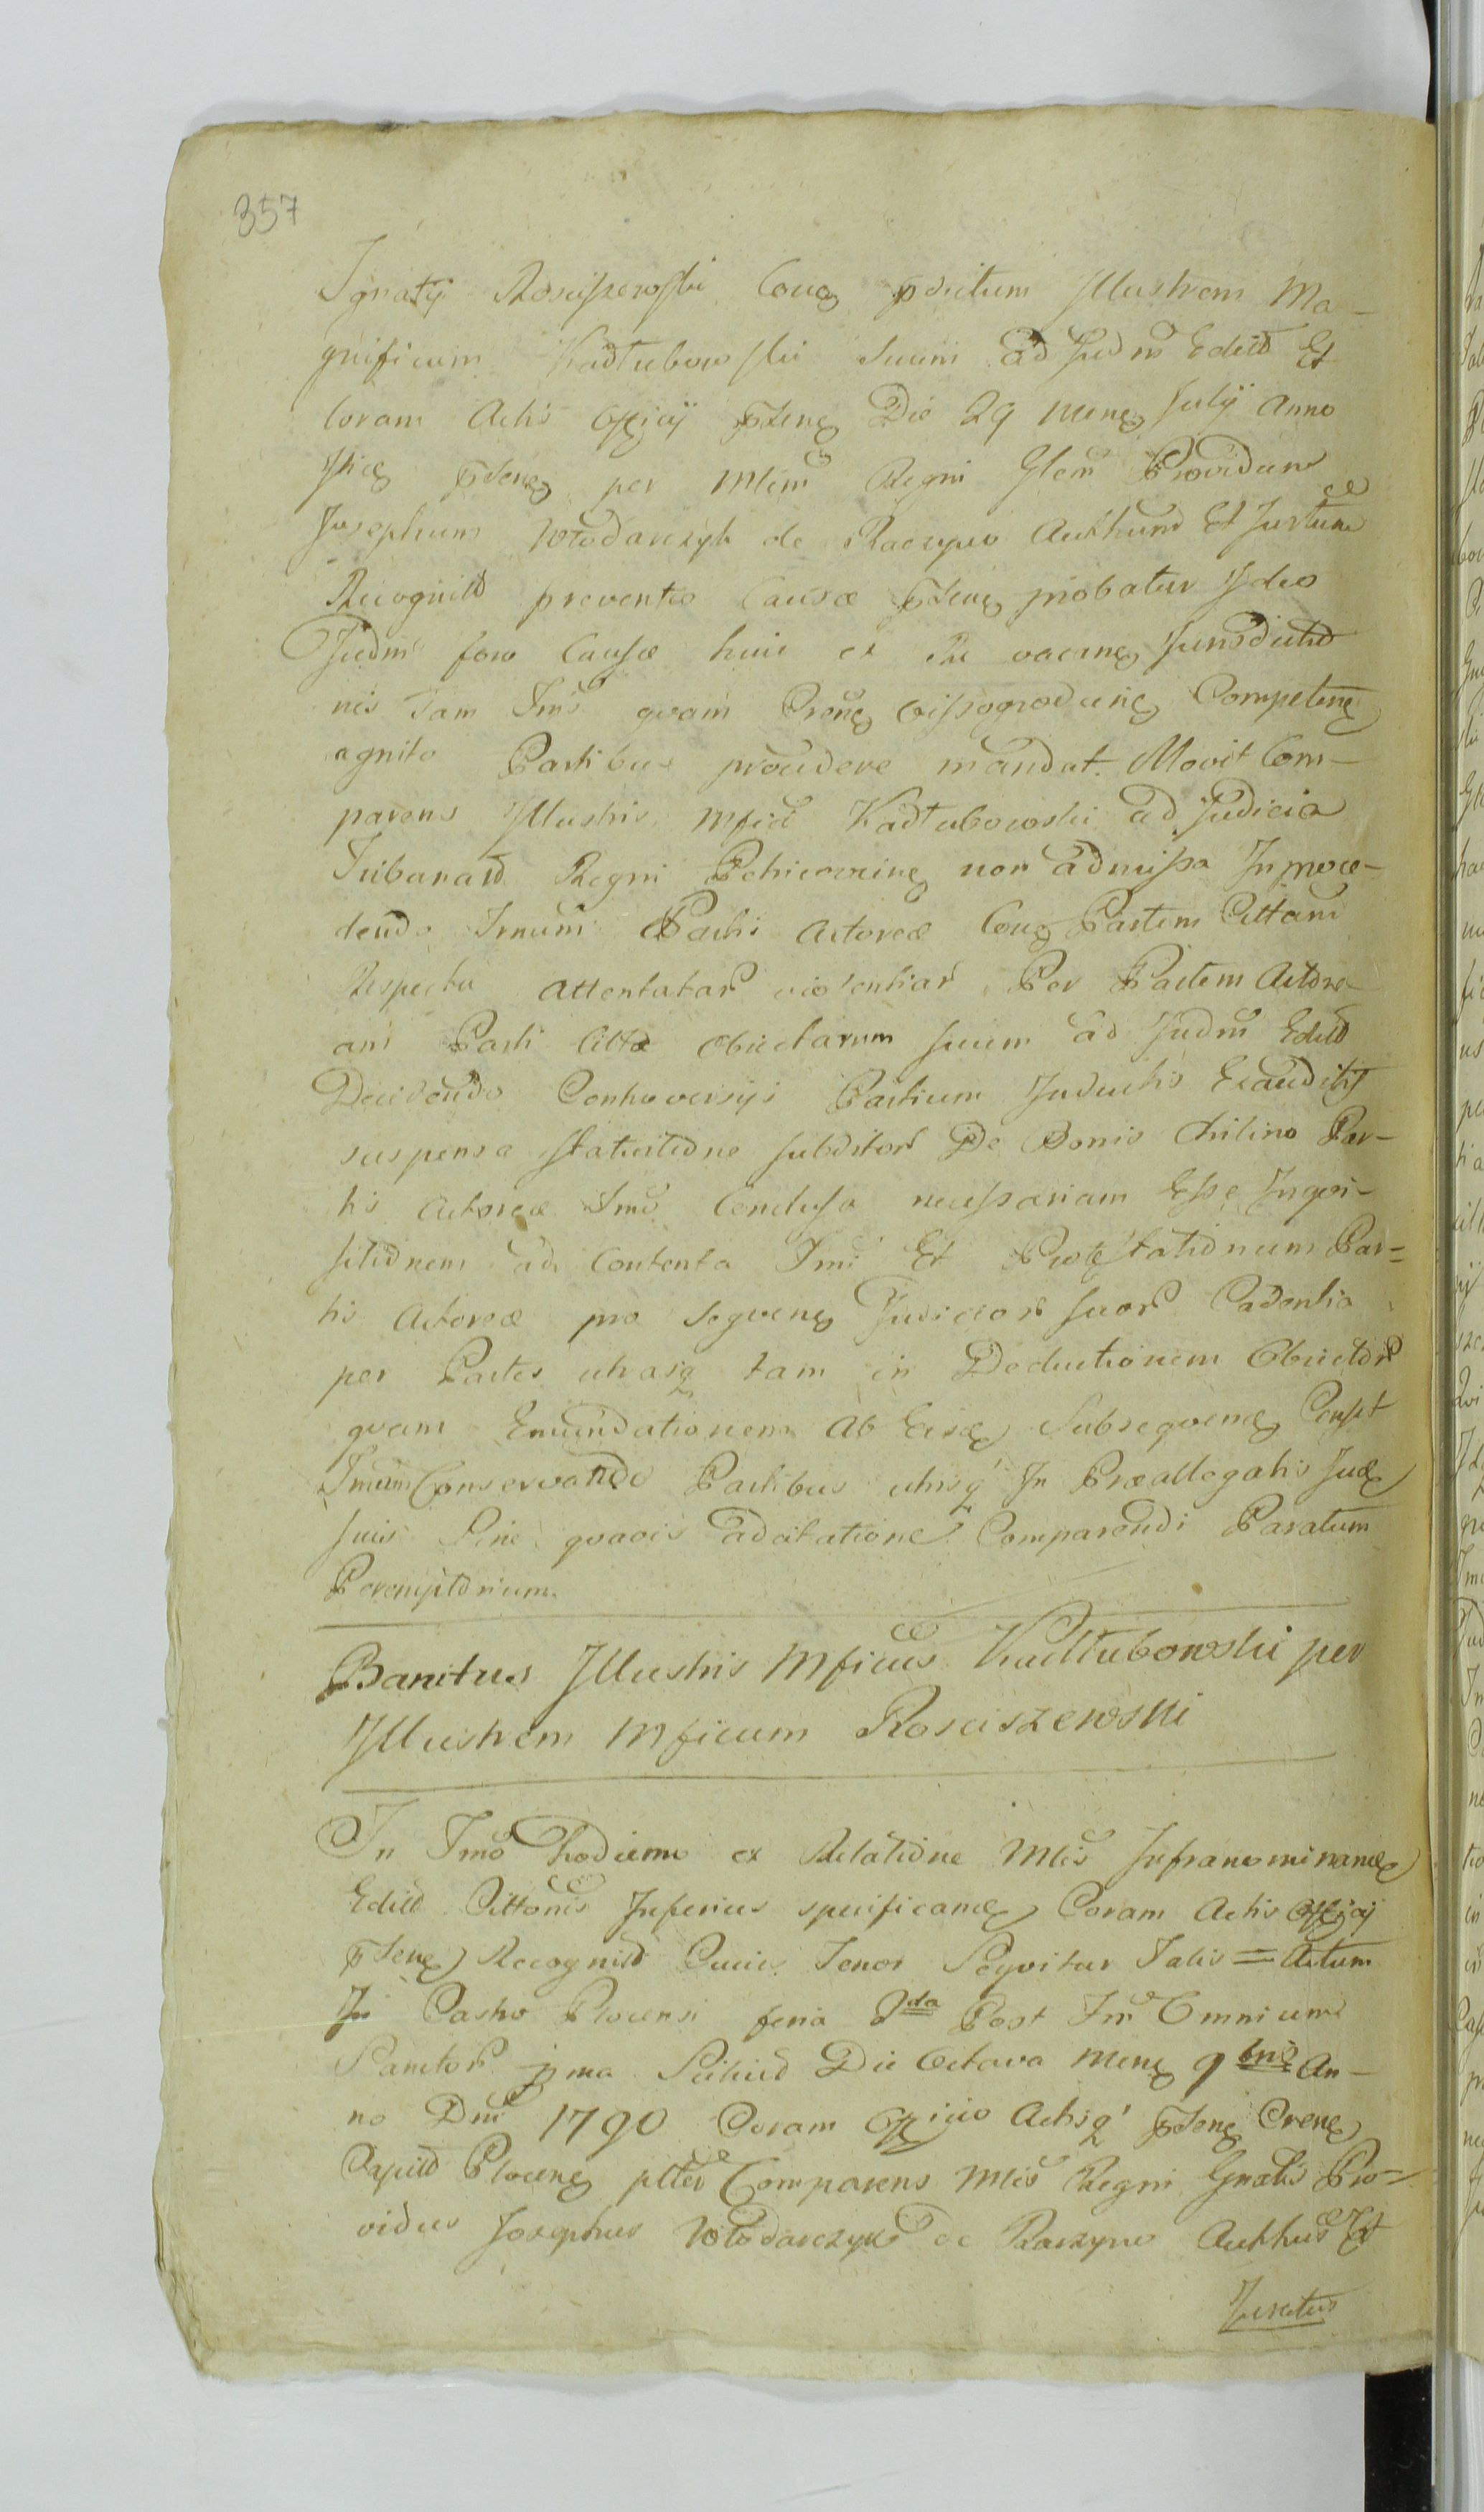 357
Ignatij Rosciszewski Coneg pdictum Illustrem Ma-
gnificum Kadłubowski Suum ad Judm Edito Et
Coram Actis Officij pstens Die 29 mens July Anno
pstens per Mlem Regni Glem Providum
Josephum Włodarczyk de Raczyno Authum Et Jurtum
Recognito preventio Causæ pstens probatur Ideo
Judm foro Causæ huic ex Re vacens Jurisdictio
nis Tam Tmis qvam Crens Vissogrodiens Competens
agnito Partibus procedere mandat. Movit Com-
parens Illustris Mfici Kadłubowski ad Judicia
Tribunalis Regni Petricoviens non admissa In proce-
dendo Tmum Parti Actoreæ Coneg Partem Cittam
Respectu attentatar violentiar Per Partem Actore-
am Parti Cittæ Obiectarum Suum ad Judm Edito
Decidendo Controversijs Partium Inductis Exauditis
suspensa statuitione subditor De Bonis Chilino Par-
tis Actoreæ Tmo Conclusa necessariam Esse Inqvi-
sitionem ad Contenta Tmi Et Protestationum Par=
tis Actoreæ pro Seqvens Judicior suor Cadentia
per Partes utrasq tam in Deductionem Obiector
qvam Emundationem Ab Eisd Subseqvens Censet
Tmum Conservando Partibus utrisq In Præallegatis Jud
suis Sine qvavis adcitatione Comparendi Paratum
Peremptorium.
Banitus Illustris Mficus Kadłubowski per
Illustrem Mficum Rosciszewski
In Tmo hodierno ex Relatione Mlis Infranominand
Edito Cittonis Inferius specificand Coram Actis Officij
pstens Recognito Cuius Tenor Seqvitur Talis = Actum
In Castro Plocensi feria 2da Post Fm Omnium
Sanctor pma Scilicet Die Octava mens 9bris An-
no Dni 1790 Coram Officio Actisq pstens Crens
Capitd Plocens plter Comparens Mlis Regni Gnalis Pro-
vidus Josephus Włodarczyk de Raczyno Authus Et
Juratus